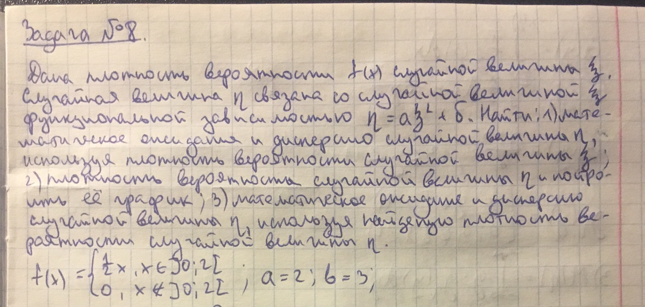 Задача №8.
Дана плотность вероятности f(x) случайной величины ξ.
Случайная величина η связана со случайной величиной ξ
функциональной зависимостью η = aξ² + b. Найти: 1) мате-
матическое ожидания и дисперсию случайной величины η,
используя плотность вероятности случайной величины ξ;
2) плотность вероятности случайной величины η и постро-
ить её график; 3) математическое ожидание и дисперсию
случайной величины η, используя найденую плотность ве-
роятности случайной величины η.
f(x) = { ½x, x∈]0;2[ ; a=2; b=3;
0, x∉]0;2[